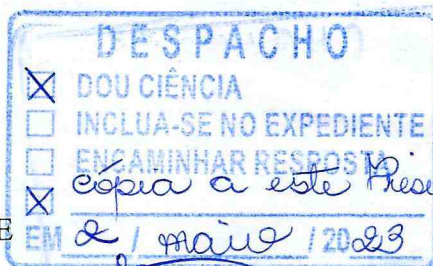 DESPACHO
DOU CIÊNCIA
INCLUA-SE NO EXPEDIENTE
ENCAMINHAR RESPOSTA
cópia a este
EM 2 / maio / 2023